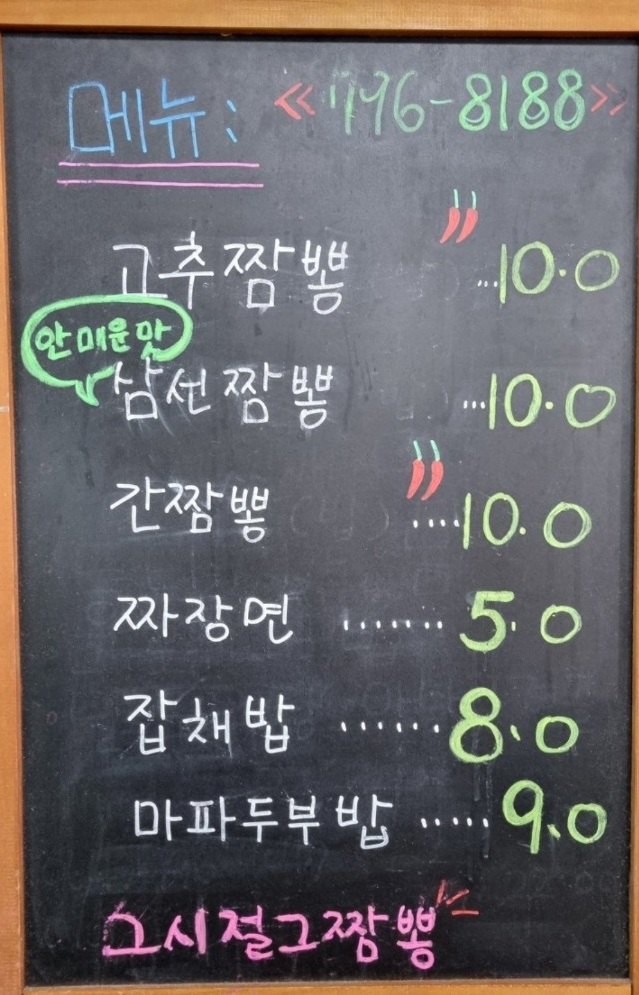 메뉴: «796-8188»
고추짬뽕 ...10.0
안매운맛
삼선짬뽕 ...10.0
간짬뽕 ....10.0
짜장면 .......5.0
잡채밥 ......8.0
마파두부밥 .....9.0
그시절그짬뽕